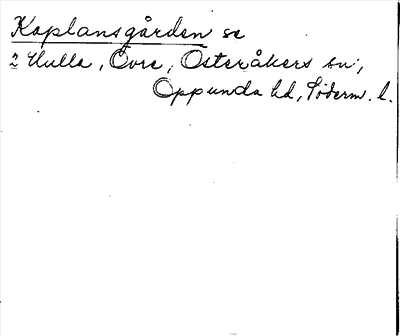 Kaplansgården se
2 Hulla, Övre, Österåkers sn,
Oppunda hd, Söderm. l.